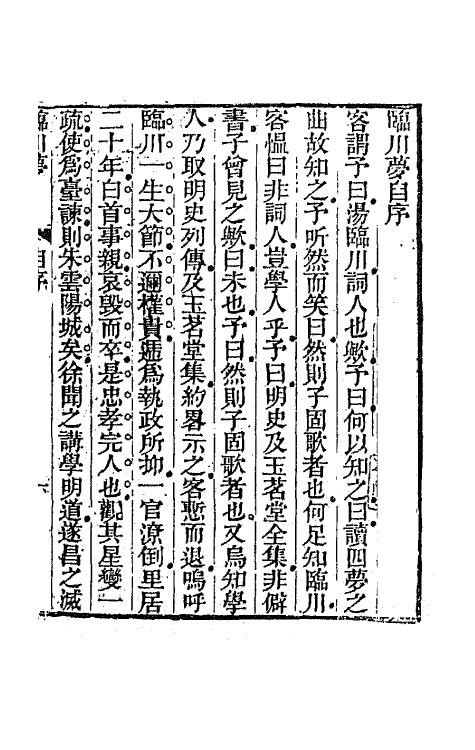 臨川夢自序
客謂予曰湯臨川詞人也歟予曰何以知之曰讀四夢之
曲故知之予听然而笑曰然則子固歌者也何足知臨川
客愠曰非詞人豈學人乎予曰明史及玉茗堂全集非僻
書子曾見之歟曰未也予曰然則子固歌者也又烏知學
人乃取明史列傳及玉茗堂集約畧示之客慙而退嗚呼
臨川一生大節不邇權貴遞為執政所抑一官潦倒里居
二十年白首事親哀毀而卒是忠孝完人也觀其星變一
疏使為臺諫則朱雲陽城矣徐聞之講學明道遂昌之滅
臨川夢
自序
六